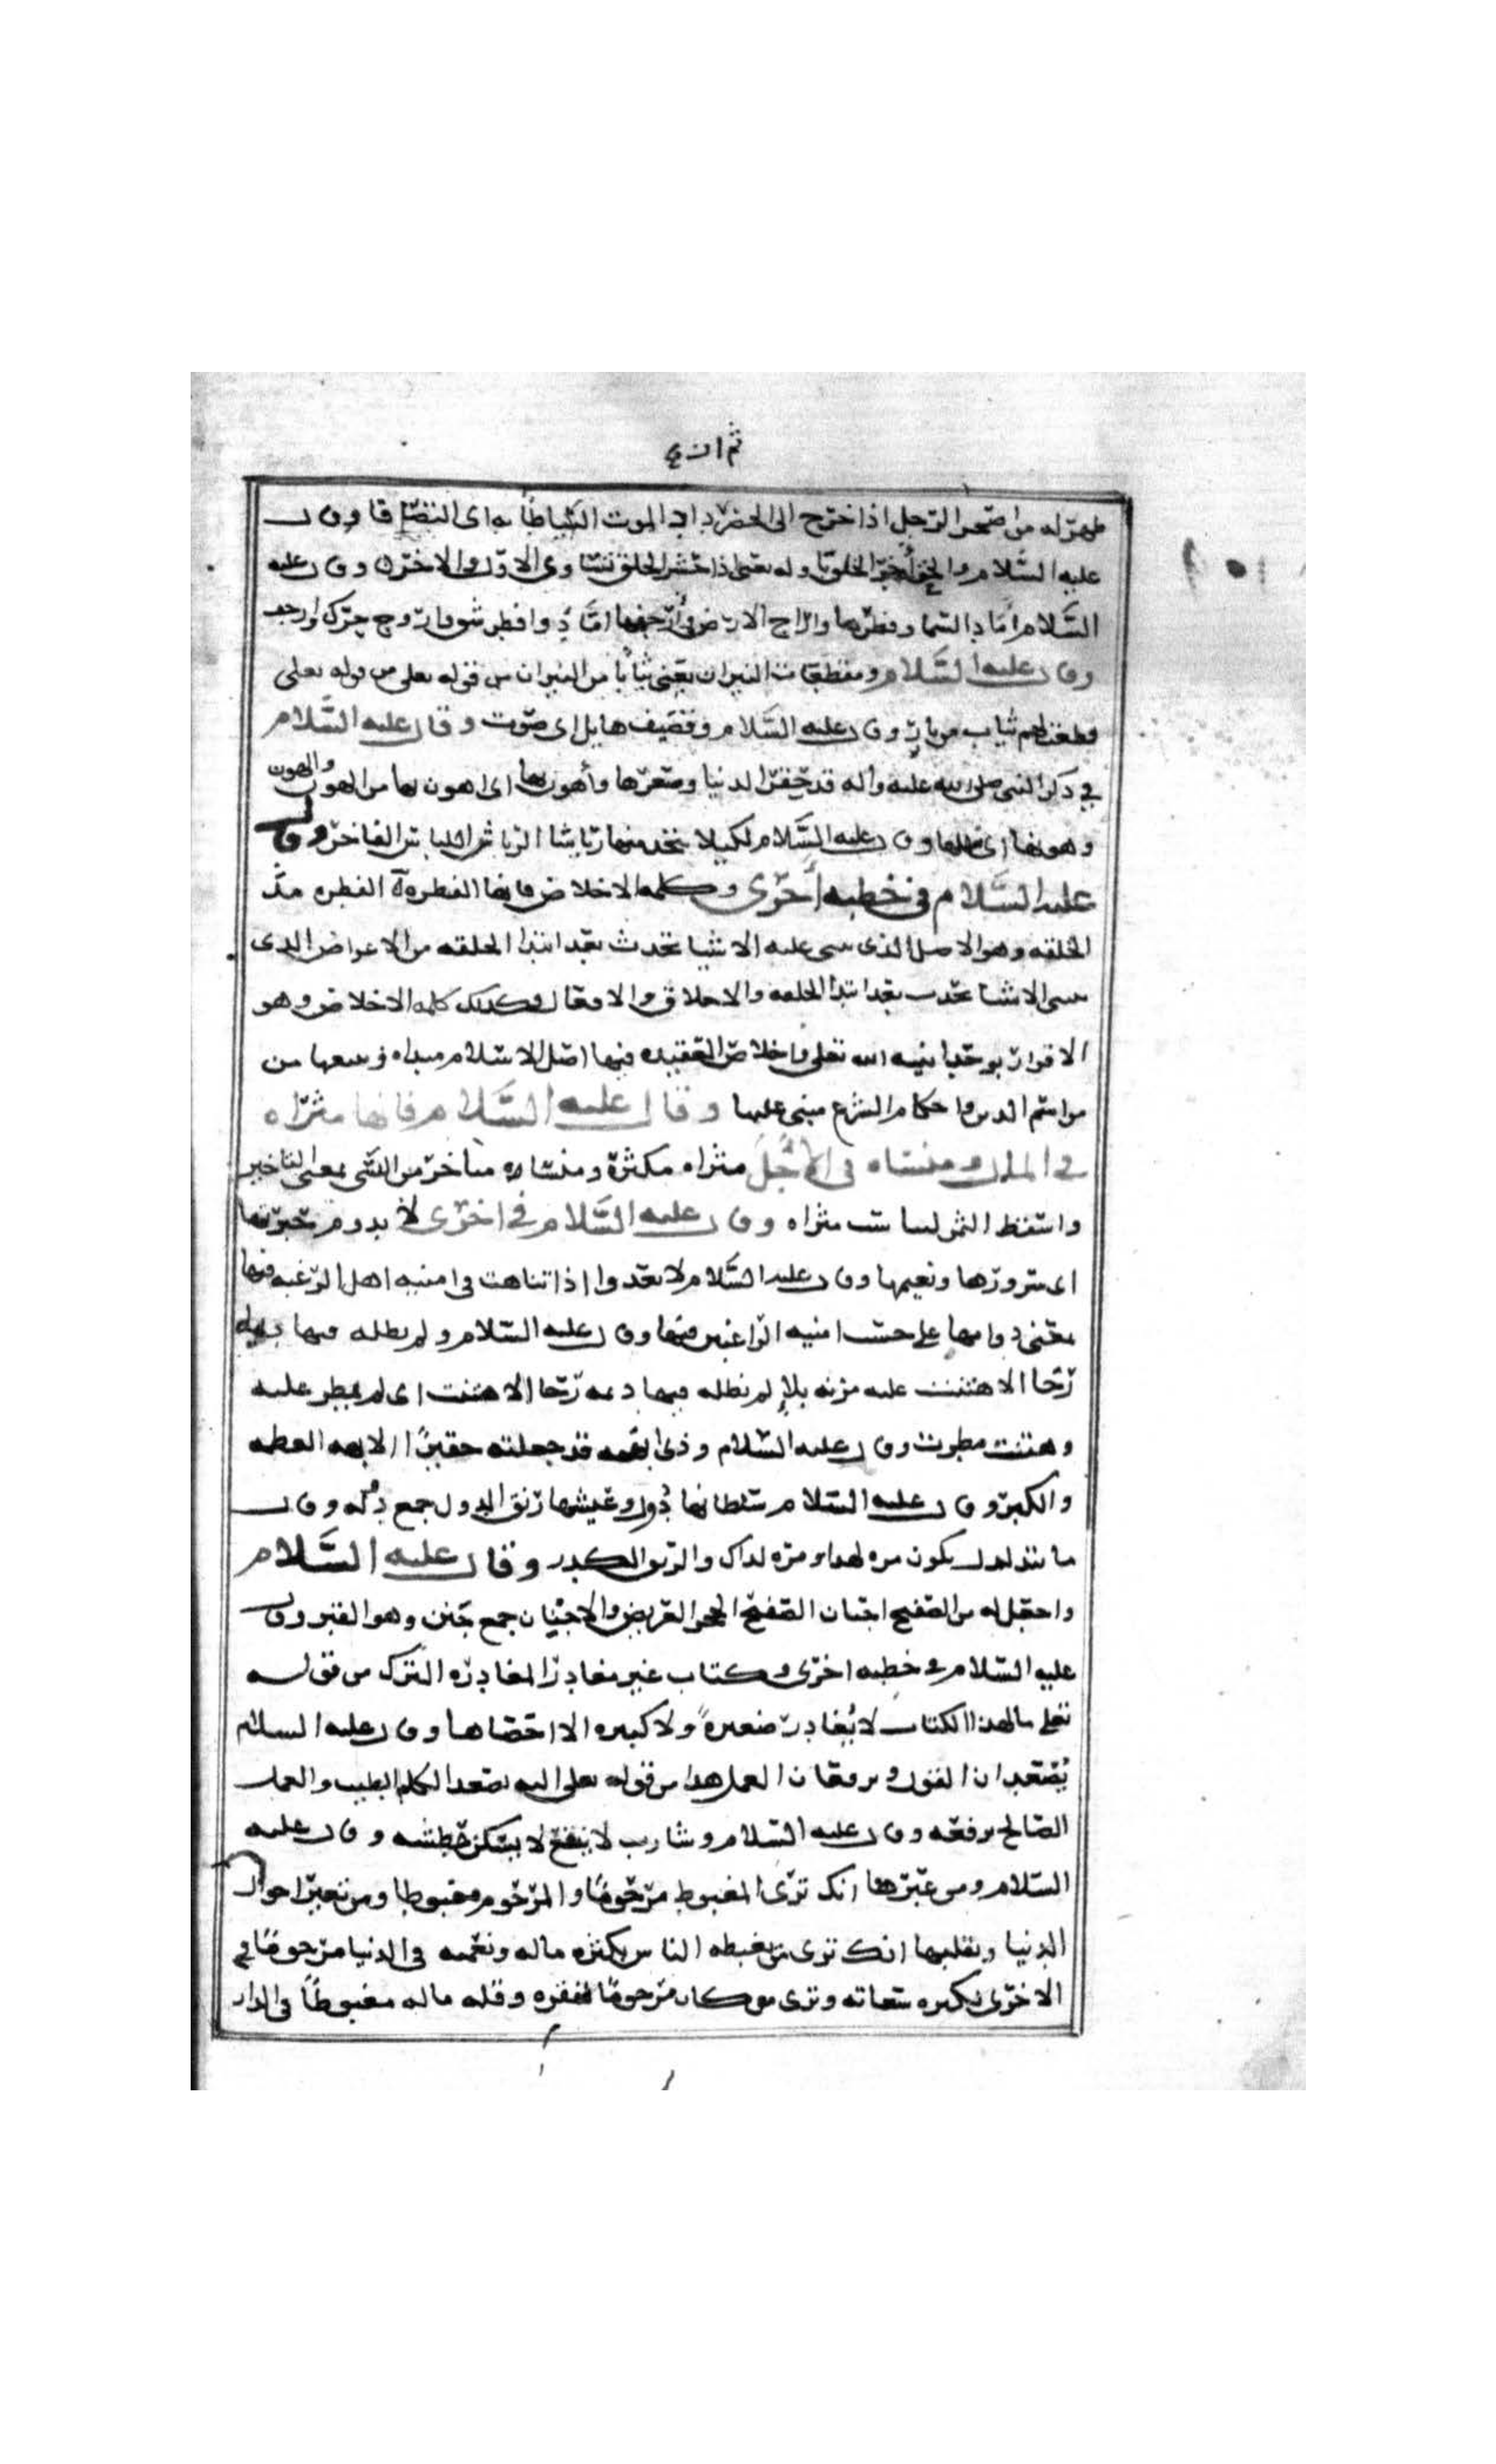 ثم ان ع
ظهر له من اصحر الرجل اذا خرج الى الصحرا الموت التياطا به اى التصق قا وقال
عليه السلام والحق آخر الخلق باوله يعنى اذا حشر الخلق تساوى الاول والاخر وقال عليه
السلام اماد السما وفطرها وارج الارض وارجفها اماد وا فطر شق وارج حرك وارجف
وقال عليه السلام ومقطعات النيران يعنى ثيابا من النيران من قوله تعلى من قوله تعلى
قطعت لهم ثياب من نار وقال عليه السلام وقصيف هايل اى صوت وقال عليه السلام
في ذكر النبى صلى الله عليه واله قد حقر الدنيا وصغرها وأهون بها اى اهون بها من الهون والهون
وهونها اى وقال عليه السلام لكيلا يتخذ منها رياشا الرياش اللباس الفاخر وقال
عليه السلام فى خطبه أخرى وكلمه الاخلاص فانها الفطرة الفطره
الخلقه وهو الاصل الذى عليه الاشيا تحدث بعد ابتدا الخلقه من الاعراض الذى
الاشيا تحدث بعد ابتدا الخلقه والاخلاق والافعال وكذلك كلمه الاخلاص وهو
الاقرار بوحدانيه الله تعلى واخلاص العقيده فيها اصل الاسلام من
مراسم الدين واحكام الشرع مبنى عليها وقال عليه السلام فانها مثراه
فى المال ومنساه فى الأجل مثراه مكثرة ومنساه متاخر من النسى بمعنى التاخير
مثراه وقال عليه السلام فى اخرى لا يدوم حبرتها
اى سرورها ونعيمها وقال عليه السلام لا تعدوا اذا تناهت فى امنيه اهل الرغبه فيها
يعنى دوامها على حسب امنيه الراغبين فيها وقال عليه السلام ولم تطله فيها ديمه
رخا الا هتنت عليه مزنه بلا لم تطله فيها ديمه رخا الا هتنت اى لم يمطر عليه
وهتنت مطرت وقال عليه السلام وذى ابهه قد جعلته حقيرا الابهه العظمه
والكبر وقال عليه السلام سلطانها دول وعيشها رنق الدول جمع دوله وقال
ما يتداول يكون مره لهذا ومره لذاك والرنق الكدر وقال عليه السلام
واجعل له من الصفيح اجنان الصفيح الحجر العريض والاجنان جمع جنن وهو القبر وقال
عليه السلام فى خطبه اخرى وكتاب غير مغادر المغادره الترك من قوله
تعلى مالهذا الكتاب لا يُغادر صغيرة ولا كبيره الا احصاها وقال عليه السلام
يُصعدان القول ويرفعان العمل هذا من قوله تعلى اليه يصعد الكلم الطيب والعمل
الصالح يرفعه وقال عليه السلام وشارب لا ينقع لا يسكن عطشه وقال عليه
السلام ومن غيرها انك ترى المغبوط مرحوما والمرحوم مغبوطا ومن تغير احوال
الدنيا وتقلبها انك ترى من يغبطه الناس بكثره ماله ونعمه فى الدنيا مرحوما فى
الاخرى بكثره تبعاته وترى من كان مرحوما لفقره وقله ماله مغبوطا فى الدار